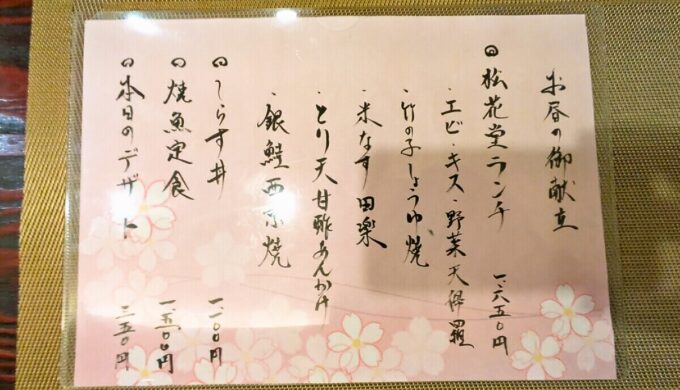 お昼の御献立
松花堂ランチ 一、六五〇円
・エビ・キス・野菜天婦羅
・竹の子しょうゆ焼
・米なす田楽
・とり天甘酢あんかけ
・銀鮭西京焼
しらす丼 一、一〇〇円
焼魚定食 一、五〇〇円
本日のデザート 三五〇円